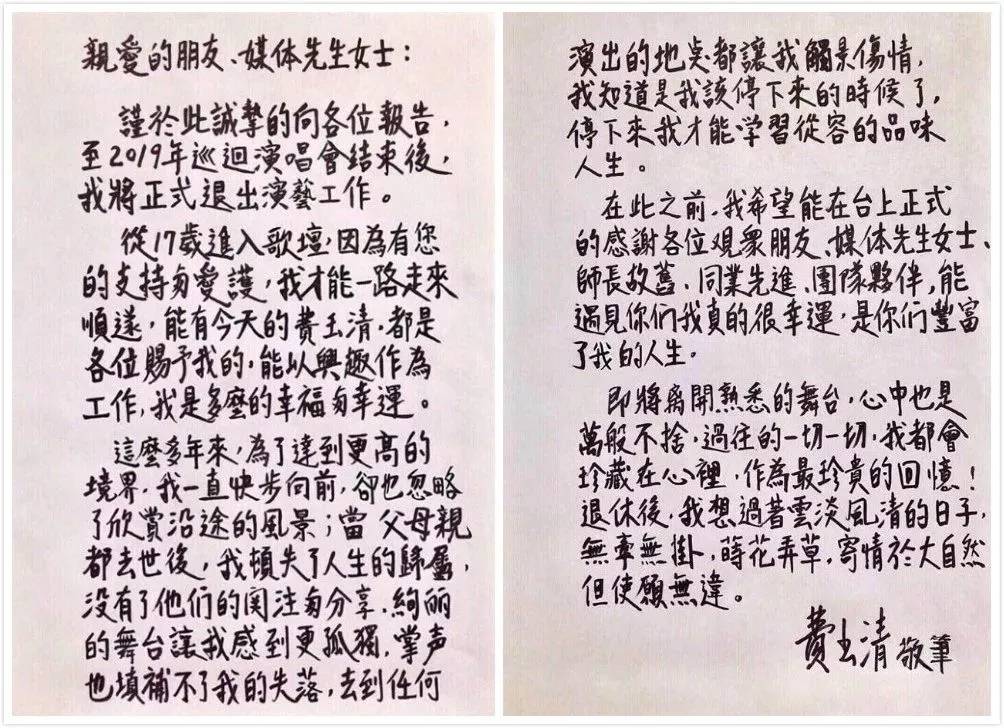 親愛的朋友、媒体先生女士：
謹於此誠摯的向各位報告，
至2019年巡迴演唱會結束後，
我將正式退出演藝工作。
從17歲進入歌壇，因為有您
的支持匂愛護，我才能一路走來
順遂，能有今天的費玉清，都是
各位賜予我的，能以興趣作為
工作，我是多麼的幸福匂幸運。
這麼多年來，為了達到更高的
境界，我一直快步向前，卻也忽略
了欣賞沿途的風景；當父母親
都去世後，我頓失了人生的歸屬，
没有了他們的関注匂分享，絢麗
的舞台讓我感到更孤獨，掌声
也填補不了我的失落，去到任何
演出的地點都讓我觸景傷情，
我知道是我該停下來的時候了，
停下來我才能学習從容的品味
人生。
在此之前，我希望能在台上正式
的感謝各位观眾朋友、媒体先生女士、
師長故舊、同業先進、團隊夥伴，能
遇見你們我真的很幸運，是你們豐富
了我的人生。
即將离開熟悉的舞台，心中也是
萬般不捨，過往的一切一切，我都會
珍藏在心裡，作為最珍貴的回憶！
退休後，我想過著雲淡風清的日子，
無牽無掛，蒔花弄草，寄情於大自然
但使願無違。
費玉清 敬筆